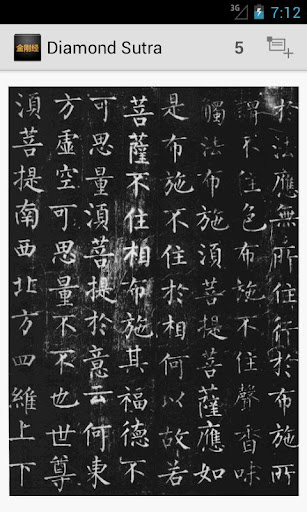 7:12
3G
金刚经
Diamond Sutra
5
於法應無所住行於布施所
謂不住色布施不住聲香味
觸法布施湏菩提菩薩應如
是布施不住於相何以故若
菩薩不住相布施其福德不
可思量湏菩提於意云何東
方虛空可思量不不也世尊
湏菩提南西北方四維上下